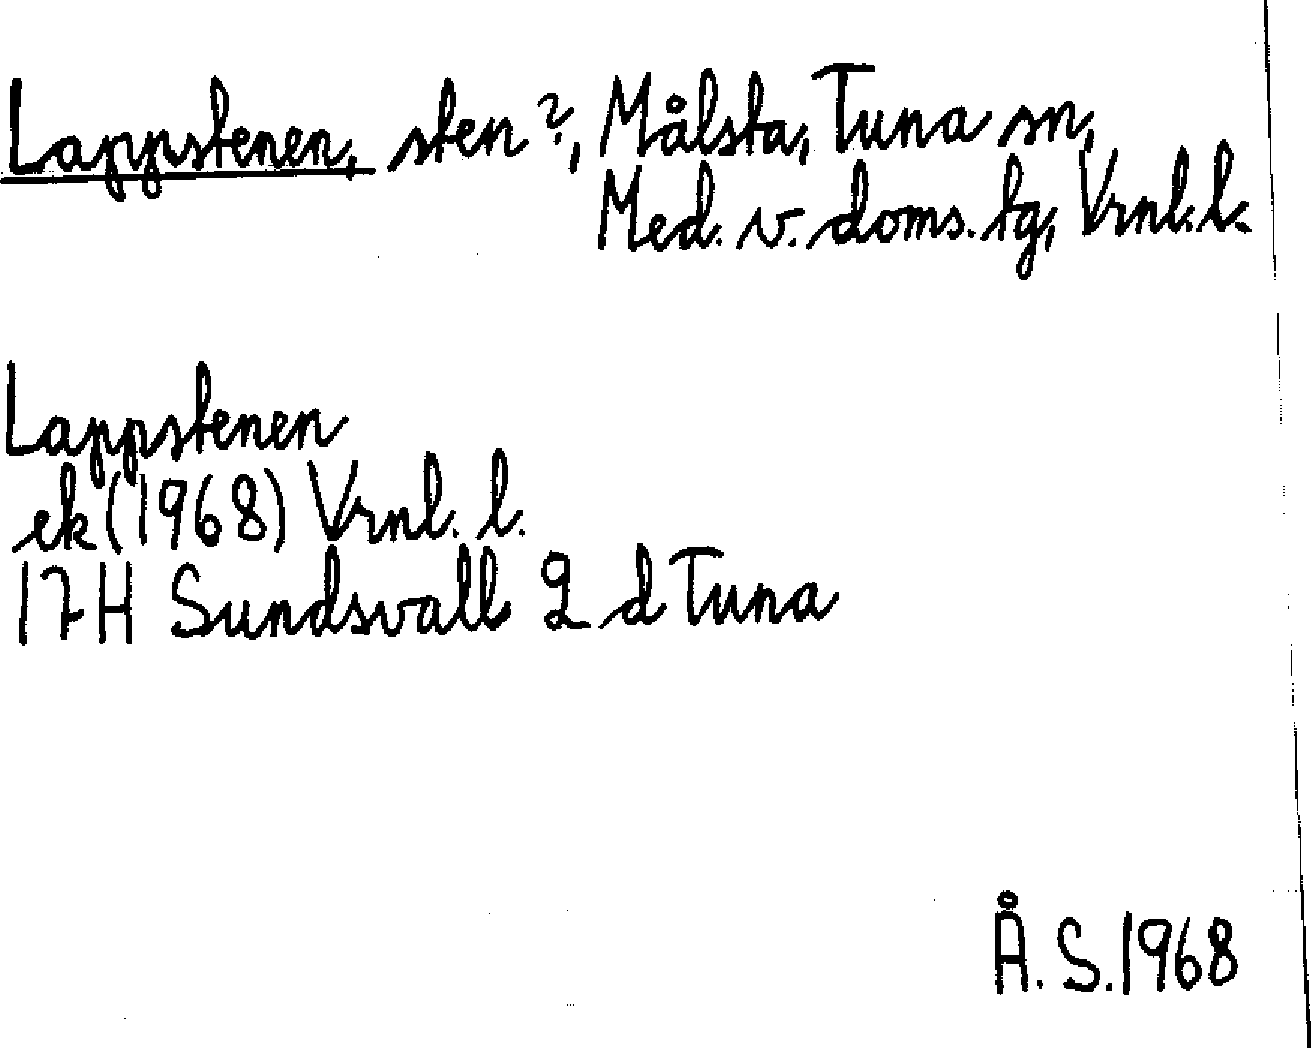 Lappstenen, sten?, Målsta, Tuna sn,
Med. v. doms. tg, Vrnl. l.
Lappstenen
ek (1968) Vrnl. l.
17H Sundsvall 2 d Tuna
Å. S. 1968